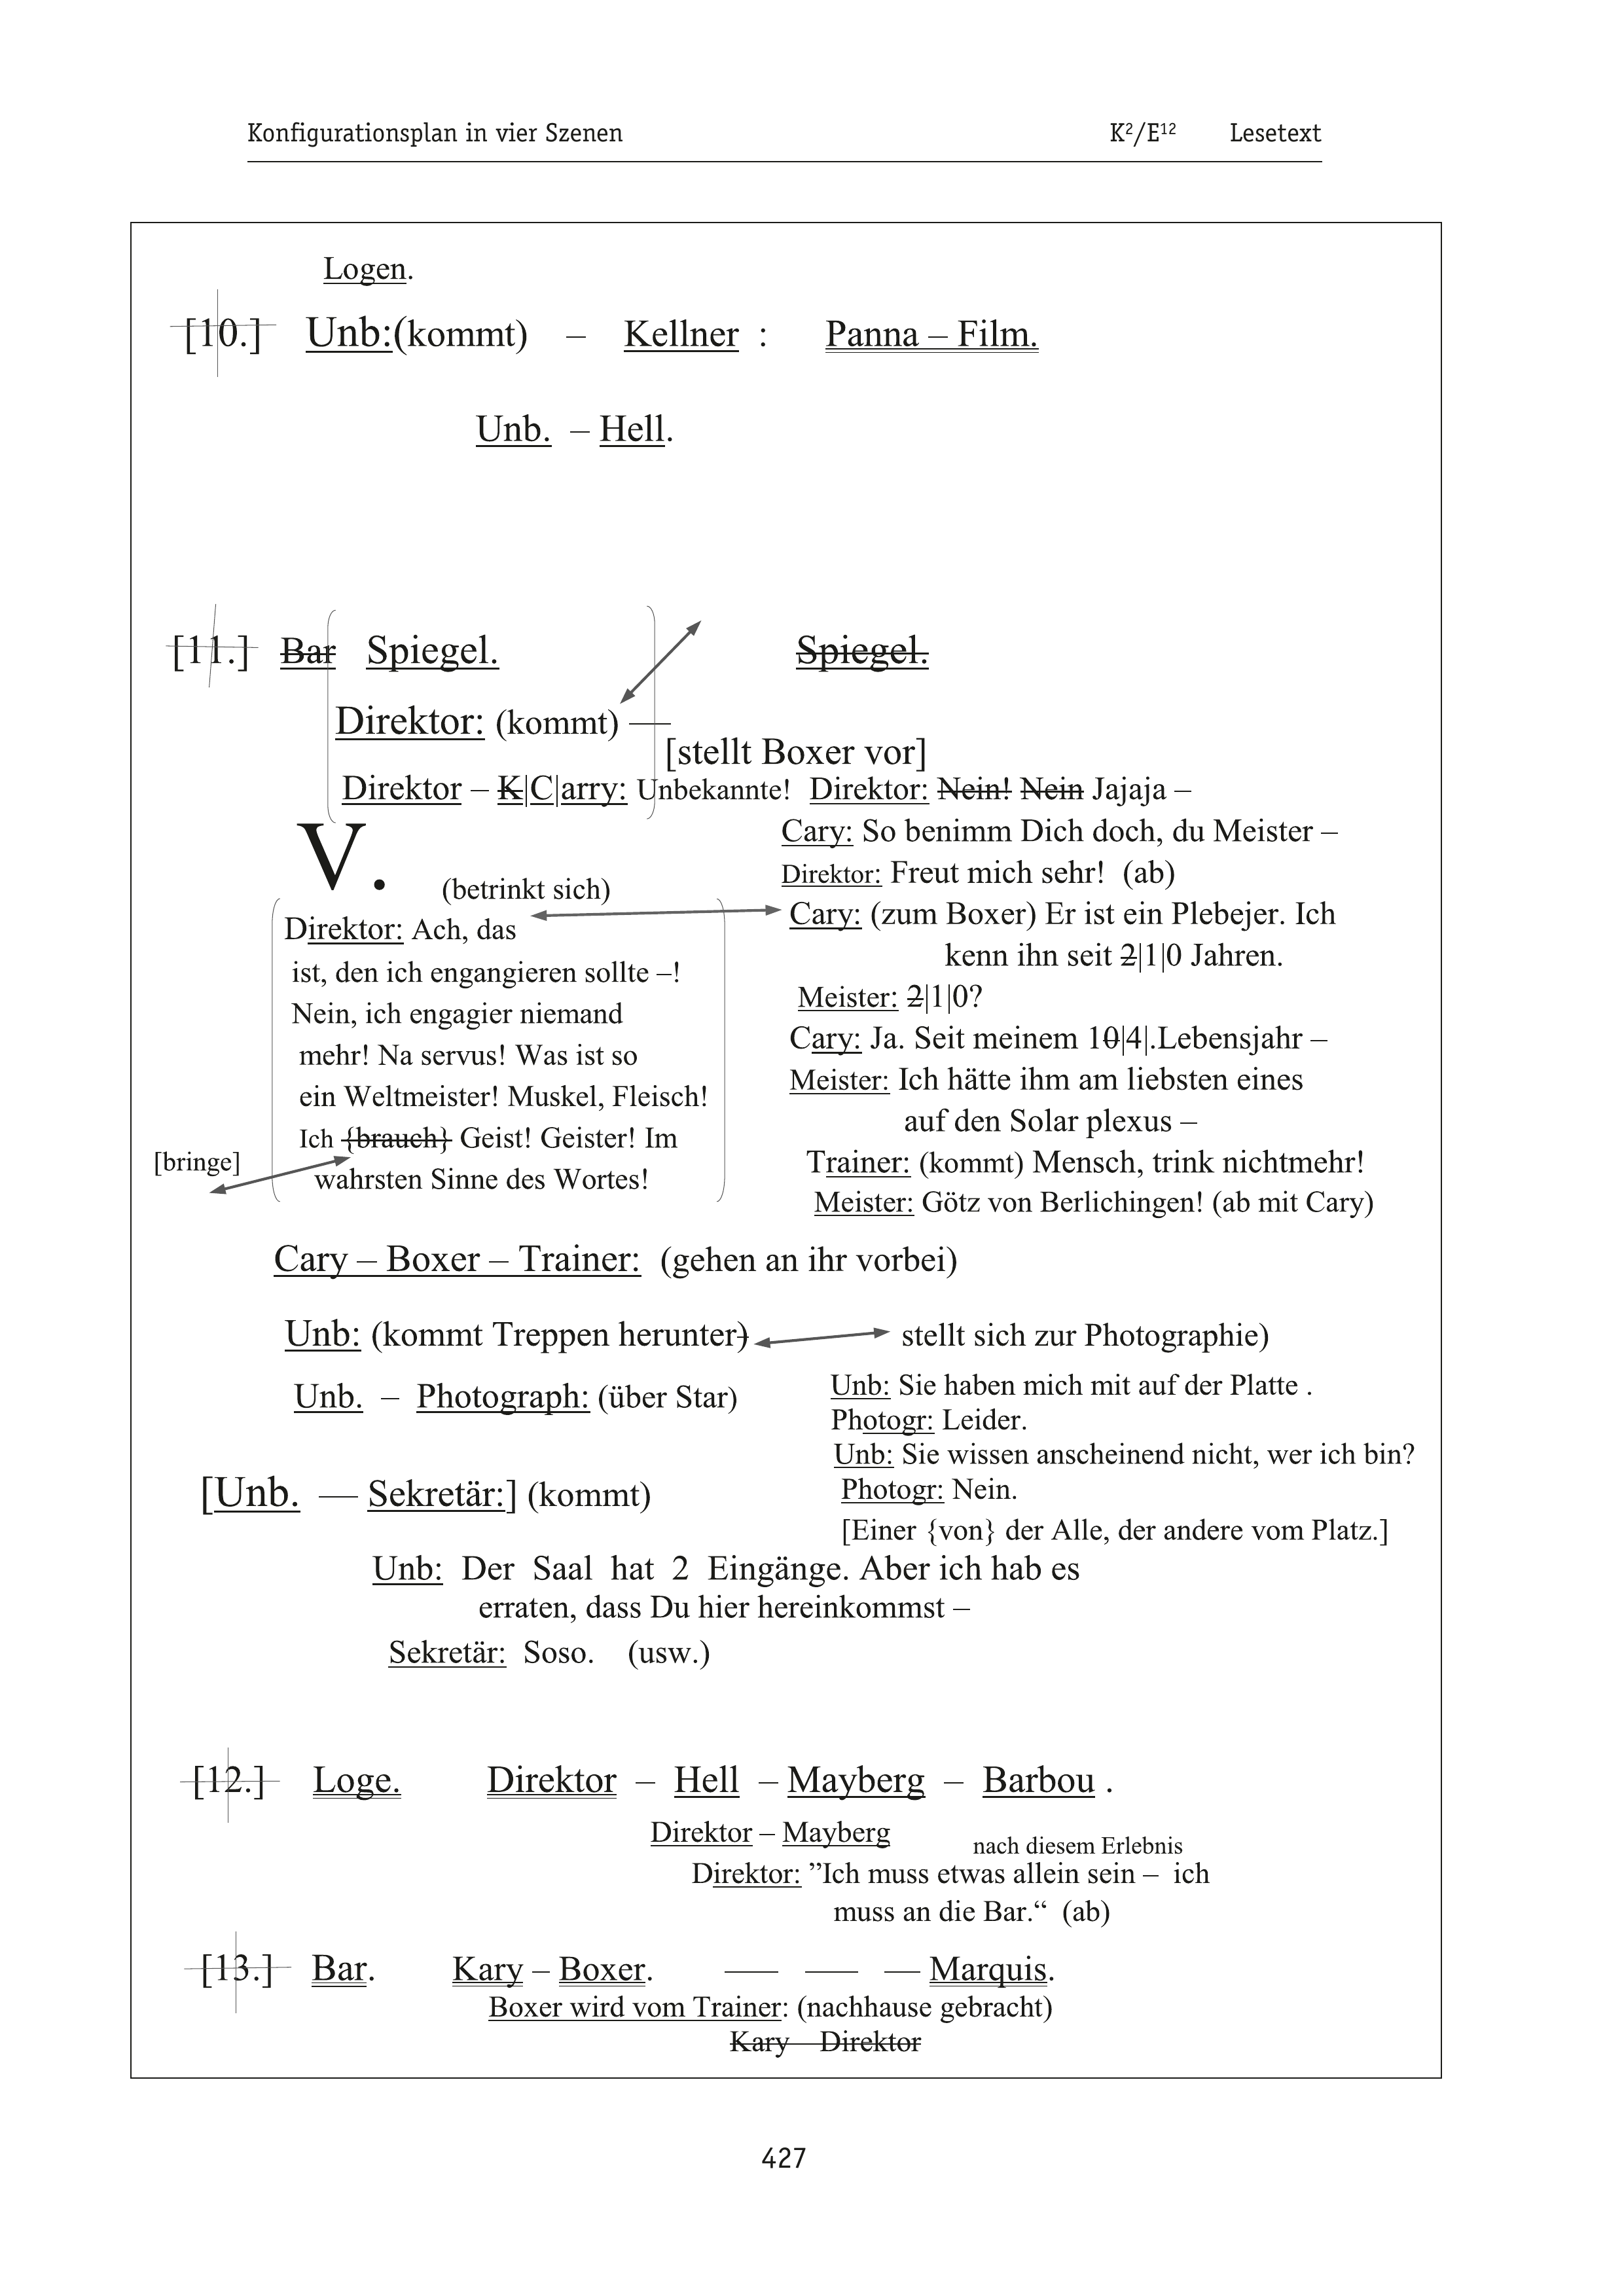 Konfigurationsplan in vier Szenen K²/E¹² Lesetext
Logen.
[10.] Unb:(kommt) – Kellner : Panna – Film.
Unb. – Hell.
[11.] Bar Spiegel. Spiegel.
Direktor: (kommt) —
[stellt Boxer vor]
Direktor – K|C|arry: Unbekannte! Direktor: Nein! Nein Jajaja –
Cary: So benimm Dich doch, du Meister –
Direktor: Freut mich sehr! (ab)
Cary: (zum Boxer) Er ist ein Plebejer. Ich
kenn ihn seit 2|1|0 Jahren.
Meister: 2|1|0?
Cary: Ja. Seit meinem 10|4|.Lebensjahr –
Meister: Ich hätte ihm am liebsten eines
auf den Solar plexus –
Trainer: (kommt) Mensch, trink nichtmehr!
Meister: Götz von Berlichingen! (ab mit Cary)
V.
(betrinkt sich)
Direktor: Ach, das
ist, den ich engangieren sollte –!
Nein, ich engagier niemand
mehr! Na servus! Was ist so
ein Weltmeister! Muskel, Fleisch!
Ich {brauch} Geist! Geister! Im
[bringe]
wahrsten Sinne des Wortes!
Cary – Boxer – Trainer: (gehen an ihr vorbei)
Unb: (kommt Treppen herunter) stellt sich zur Photographie)
Unb. – Photograph: (über Star)
Unb: Sie haben mich mit auf der Platte .
Photogr: Leider.
Unb: Sie wissen anscheinend nicht, wer ich bin?
Photogr: Nein.
[Einer {von} der Alle, der andere vom Platz.]
[Unb. — Sekretär:] (kommt)
Unb: Der Saal hat 2 Eingänge. Aber ich hab es
erraten, dass Du hier hereinkommst –
Sekretär: Soso. (usw.)
[12.] Loge. Direktor – Hell – Mayberg – Barbou .
Direktor – Mayberg
nach diesem Erlebnis
Direktor: ”Ich muss etwas allein sein – ich
muss an die Bar.“ (ab)
[13.] Bar. Kary – Boxer. — — — Marquis.
Boxer wird vom Trainer: (nachhause gebracht)
Kary – Direktor
427